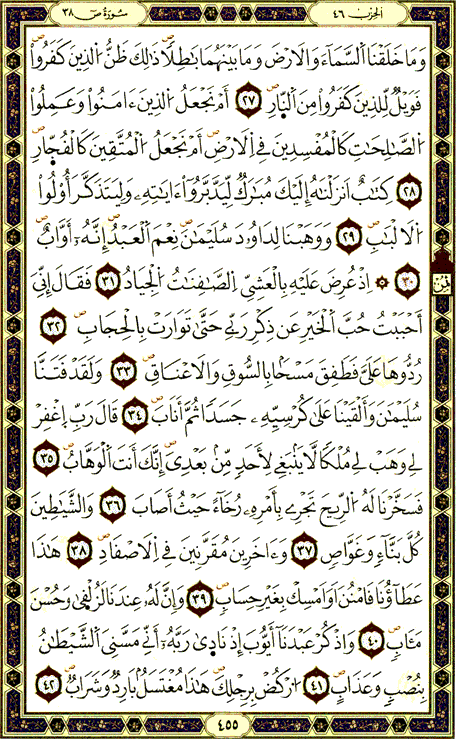 سُورَةُ ص ٣٨
الحزب ٤٦
وَمَا خَلَقْنَا اَ۬لسَّمَآءَ وَالَارْضَ وَمَا بَيْنَهُمَا بَٰطِلاٗ ذَٰلِكَ ظَنُّ اُ۬لذِينَ كَفَرُواْ
فَوَيْلٞ لِّلذِينَ كَفَرُواْ مِنَ اَ۬لنّ۪ارِ ٢٧ أَمْ نَجْعَلُ اُ۬لذِينَ ءَامَنُواْ وَعَمِلُواْ
اُ۬لصَّٰلِحَٰتِ كَالْمُفْسِدِينَ فِے اِ۬لَارْضِ أَمْ نَجْعَلُ اُ۬لْمُتَّقِينَ كَالْفُجّ۪ارِ
٢٨ كِتَٰبٌ اَنزَلْنَٰهُ إِلَيْكَ مُبَٰرَكٞ لِّيَدَّبَّرُوٓاْ ءَايَٰتِهِۦ وَلِيَتَذَكَّرَ أُوْلُواْ
اُ۬لَالْبَٰبِ ٢٩ وَوَهَبْنَا لِدَاوُۥدَ سُلَيْمَٰنَ نِعْمَ اَ۬لْعَبْدُ إِنَّهُۥٓ أَوَّابٌ
٣٠ اِذْ عُرِضَ عَلَيْهِ بِالْعَشِيِّ اِ۬لصَّٰفِنَٰتُ اُ۬لْجِيَادُ ٣١ فَقَالَ إِنِّيَ
أَحْبَبْتُ حُبَّ اَ۬لْخَيْرِ عَن ذِكْرِ رَبِّے حَتَّىٰ تَوَارَتْ بِالْحِجَابِ ٣٢
رُدُّوهَا عَلَيَّ فَطَفِقَ مَسْحاَۢ بِالسُّوقِ وَالَاعْنَاقِ ٣٣ وَلَقَدْ فَتَنَّا
سُلَيْمَٰنَ وَأَلْقَيْنَا عَلَىٰ كُرْسِيِّهِۦ جَسَداٗ ثُمَّ أَنَابَ ٣٤ قَالَ رَبِّ اِ۪غْفِرْ
لِے وَهَبْ لِے مُلْكاٗ لَّا يَنۢبَغِے لِأَحَدٖ مِّنۢ بَعْدِيَ إِنَّكَ أَنتَ اَ۬لْوَهَّابُ ٣٥
فَسَخَّرْنَا لَهُ اُ۬لرِّيحَ تَجْرِے بِأَمْرِهِۦ رُخَآءً حَيْثُ أَصَابَ ٣٦ وَالشَّيَٰطِينَ
كُلَّ بَنَّآءٖ وَغَوَّاصٖ ٣٧ وَءَاخَرِينَ مُقَرَّنِينَ فِے اِ۬لَاصْفَادِ ٣٨ هَٰذَا
عَطَآؤُنَا فَامْنُنَ اَوَ اَمْسِكْ بِغَيْرِ حِسَابٖ ٣٩ وَإِنَّ لَهُۥ عِندَنَا لَزُلْف۪يٰ وَحُسْنَ
مَـَٔابٖ ٤٠ وَاذْكُرْ عَبْدَنَآ أَيُّوبَ إِذْ نَاد۪يٰ رَبَّهُۥٓ أَنِّے مَسَّنِيَ اَ۬لشَّيْطَٰنُ
بِنُصْبٖ وَعَذَابٍ ٤١ اُ۟رْكُضْ بِرِجْلِكَ هَٰذَا مُغْتَسَلُۢ بَارِدٞ وَشَرَابٞ ٤٢
ثمن
٤٥٥